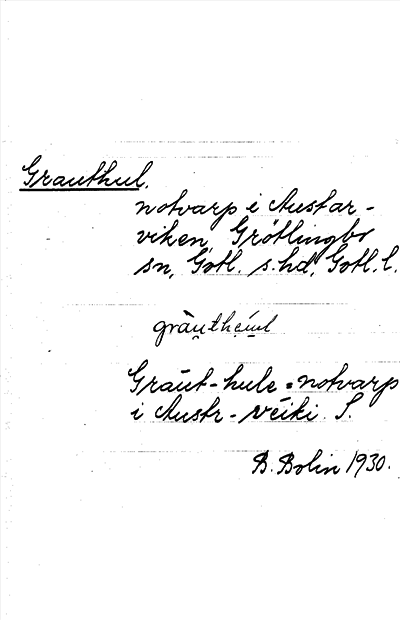 Grauthul.
notvarp i Austar-
viken, Grötlingbo
sn, Gotl. s. hd, Gotl. l.
gràu̯the̯u̯l
Graut-hule = notvarp
i Austr-veiki S.
B. Bolin 1930.